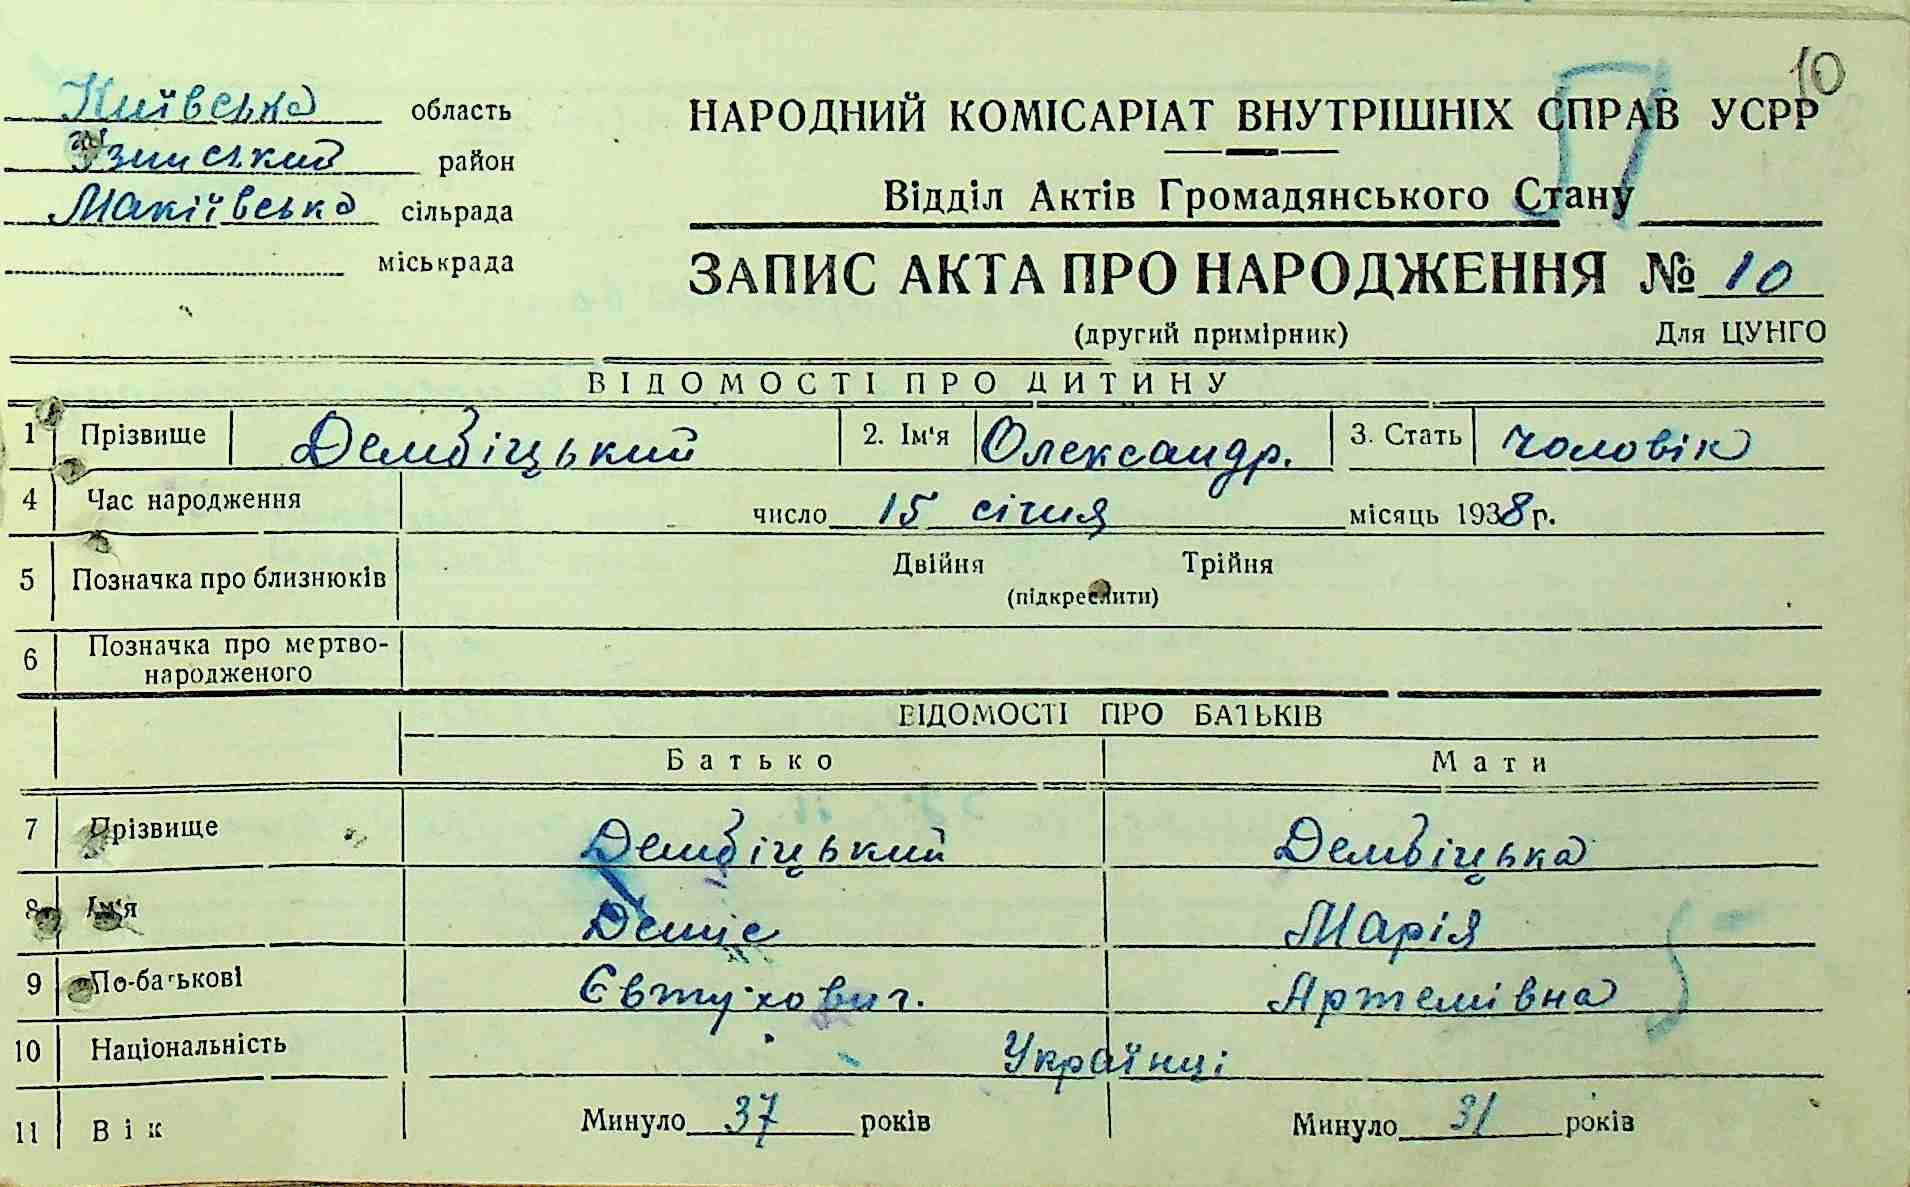 10
Київська область
Узинський район
Макіївська сільрада
міськрада
НАРОДНИЙ КОМІСАРІАТ ВНУТРІШНІХ СПРАВ УСРР
Відділ Актів Громадянського Стану
ЗАПИС АКТА ПРО НАРОДЖЕННЯ № 10
(другий примірник) Для ЦУНГО
ВІДОМОСТІ ПРО ДИТИНУ
1 Прізвище Дембіцький 2. Ім'я Олександр. 3. Стать чоловік
4 Час народження число 15 січня місяць 1938 р.
5 Позначка про близнюків Двійня Трійня
(підкреслити)
6 Позначка про мертво-
народженого
ВІДОМОСТІ ПРО БАТЬКІВ
Батько Мати
7 Прізвище Дембіцький Дембіцька
8 Ім'я Денис Марія
9 По-батькові Євтухович. Артемівна
10 Національність Українці
11 Вік Минуло 37 років Минуло 31 років